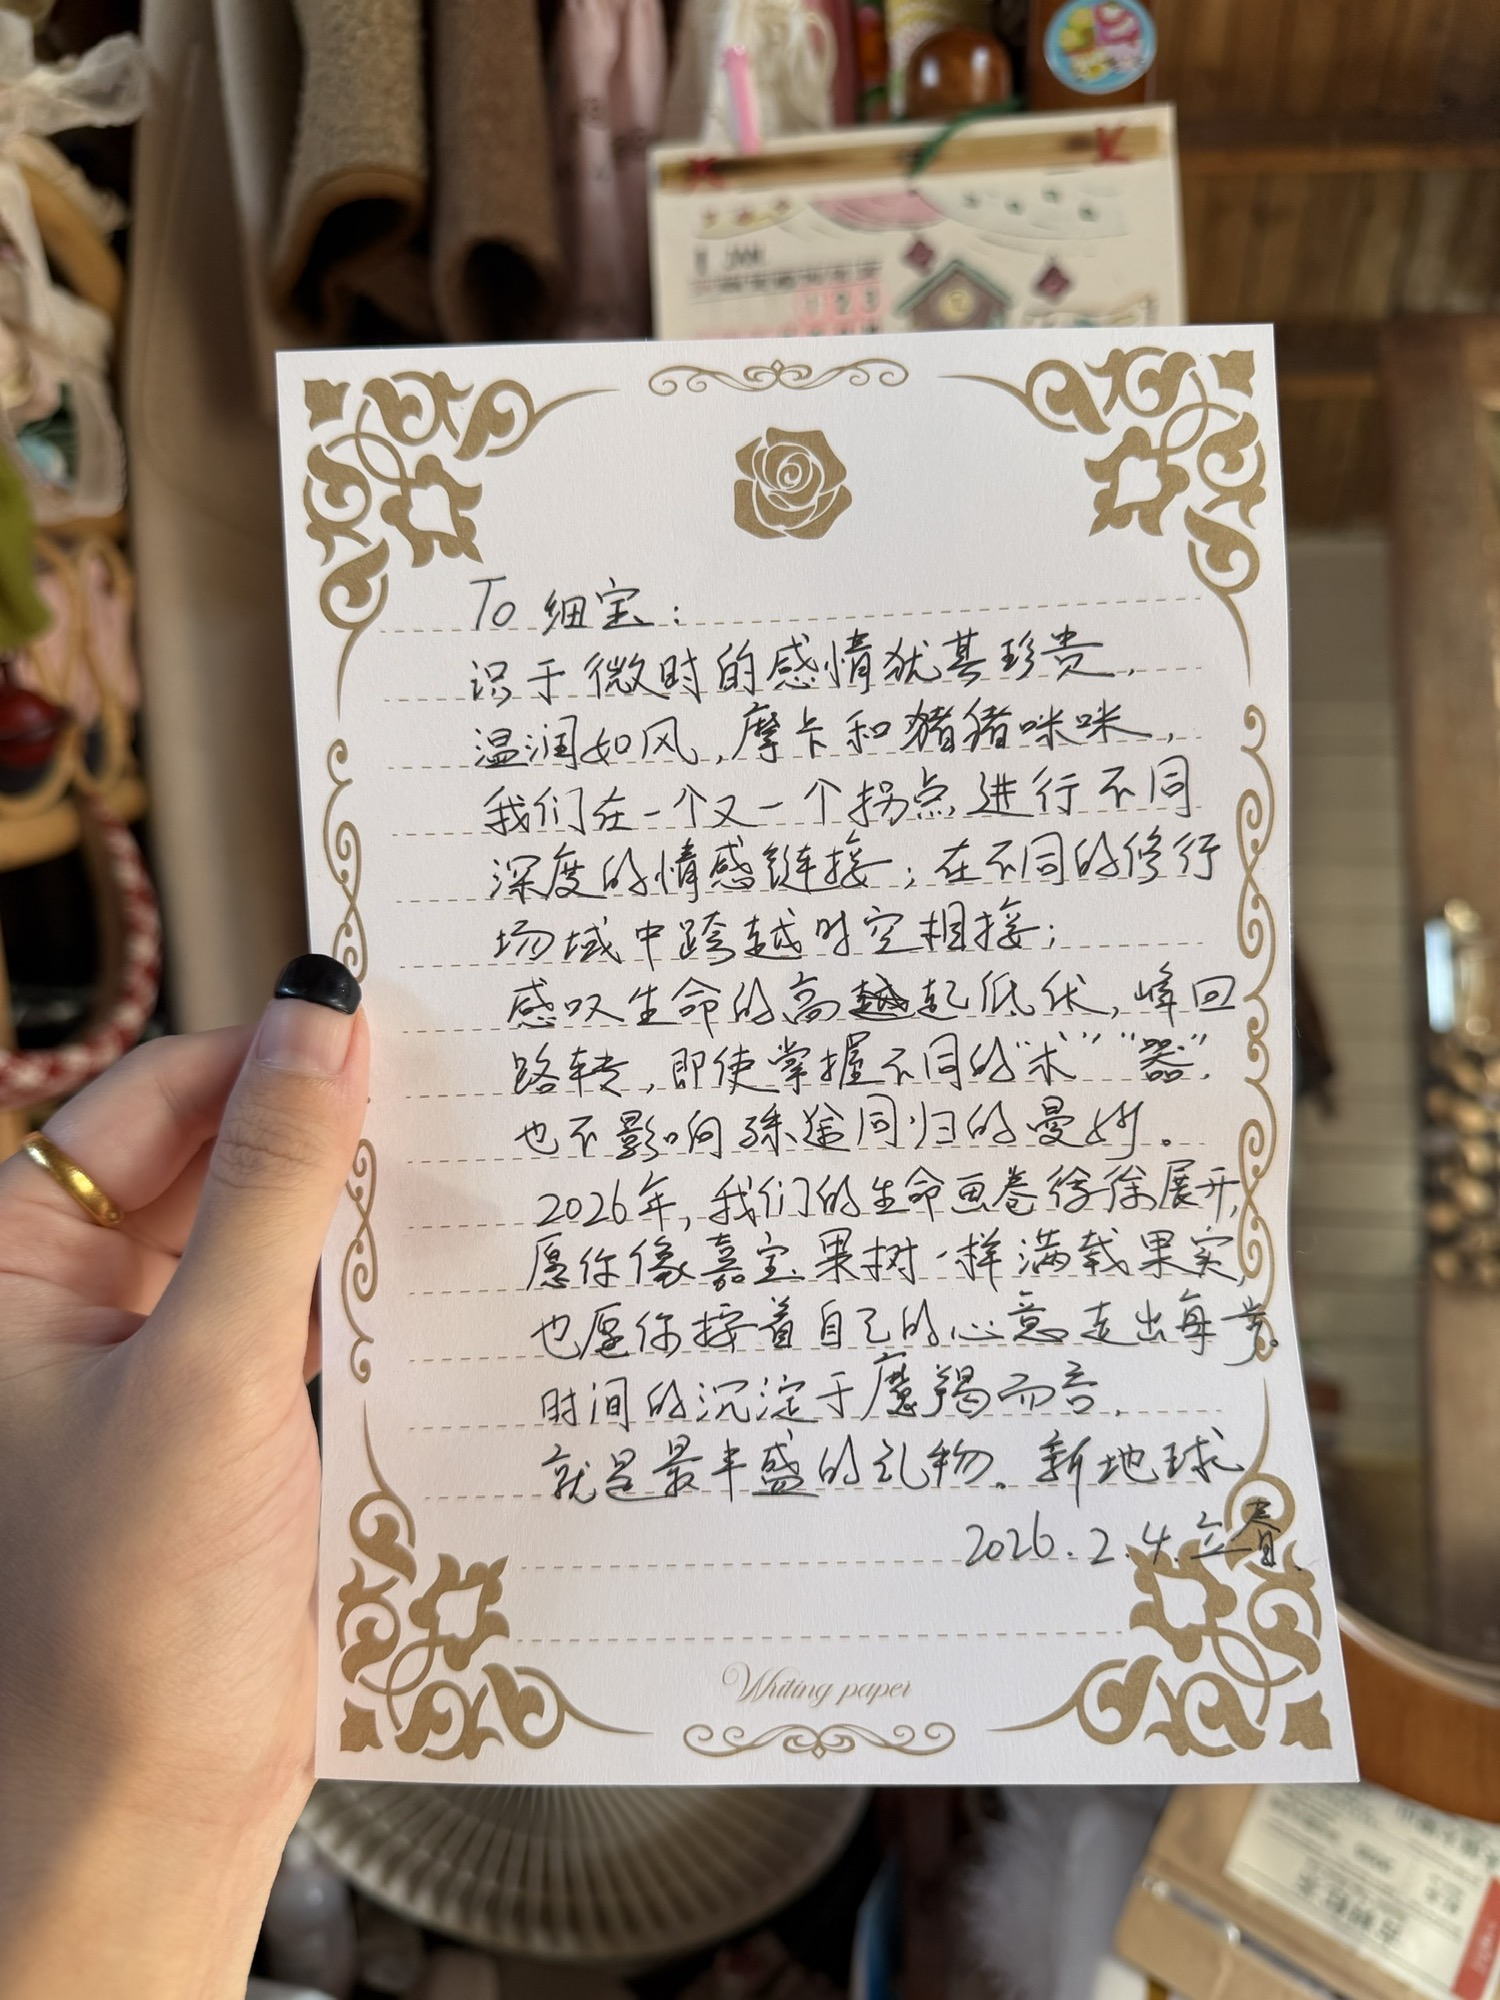 1 JAN
1 2 3
To 细宝:
识于微时的感情犹其珍贵,
温润如风,摩卡和猪猪咪咪,
我们在一个又一个拐点,进行不同
深度的情感链接;在不同的修行
场域中跨越时空相接;
感叹生命的高起低伏,峰回
路转,即使掌握不同的“术”“器”,
也不影响殊途同归的曼妙。
2026年,我们的生命画卷徐徐展开,
愿你像嘉宝果树一样满载果实,
也愿你按着自己的心意走出每步。
时间的沉淀于魔羯而言,
就是最丰盛的礼物。新地球
2026.2.4.立春
Writing paper